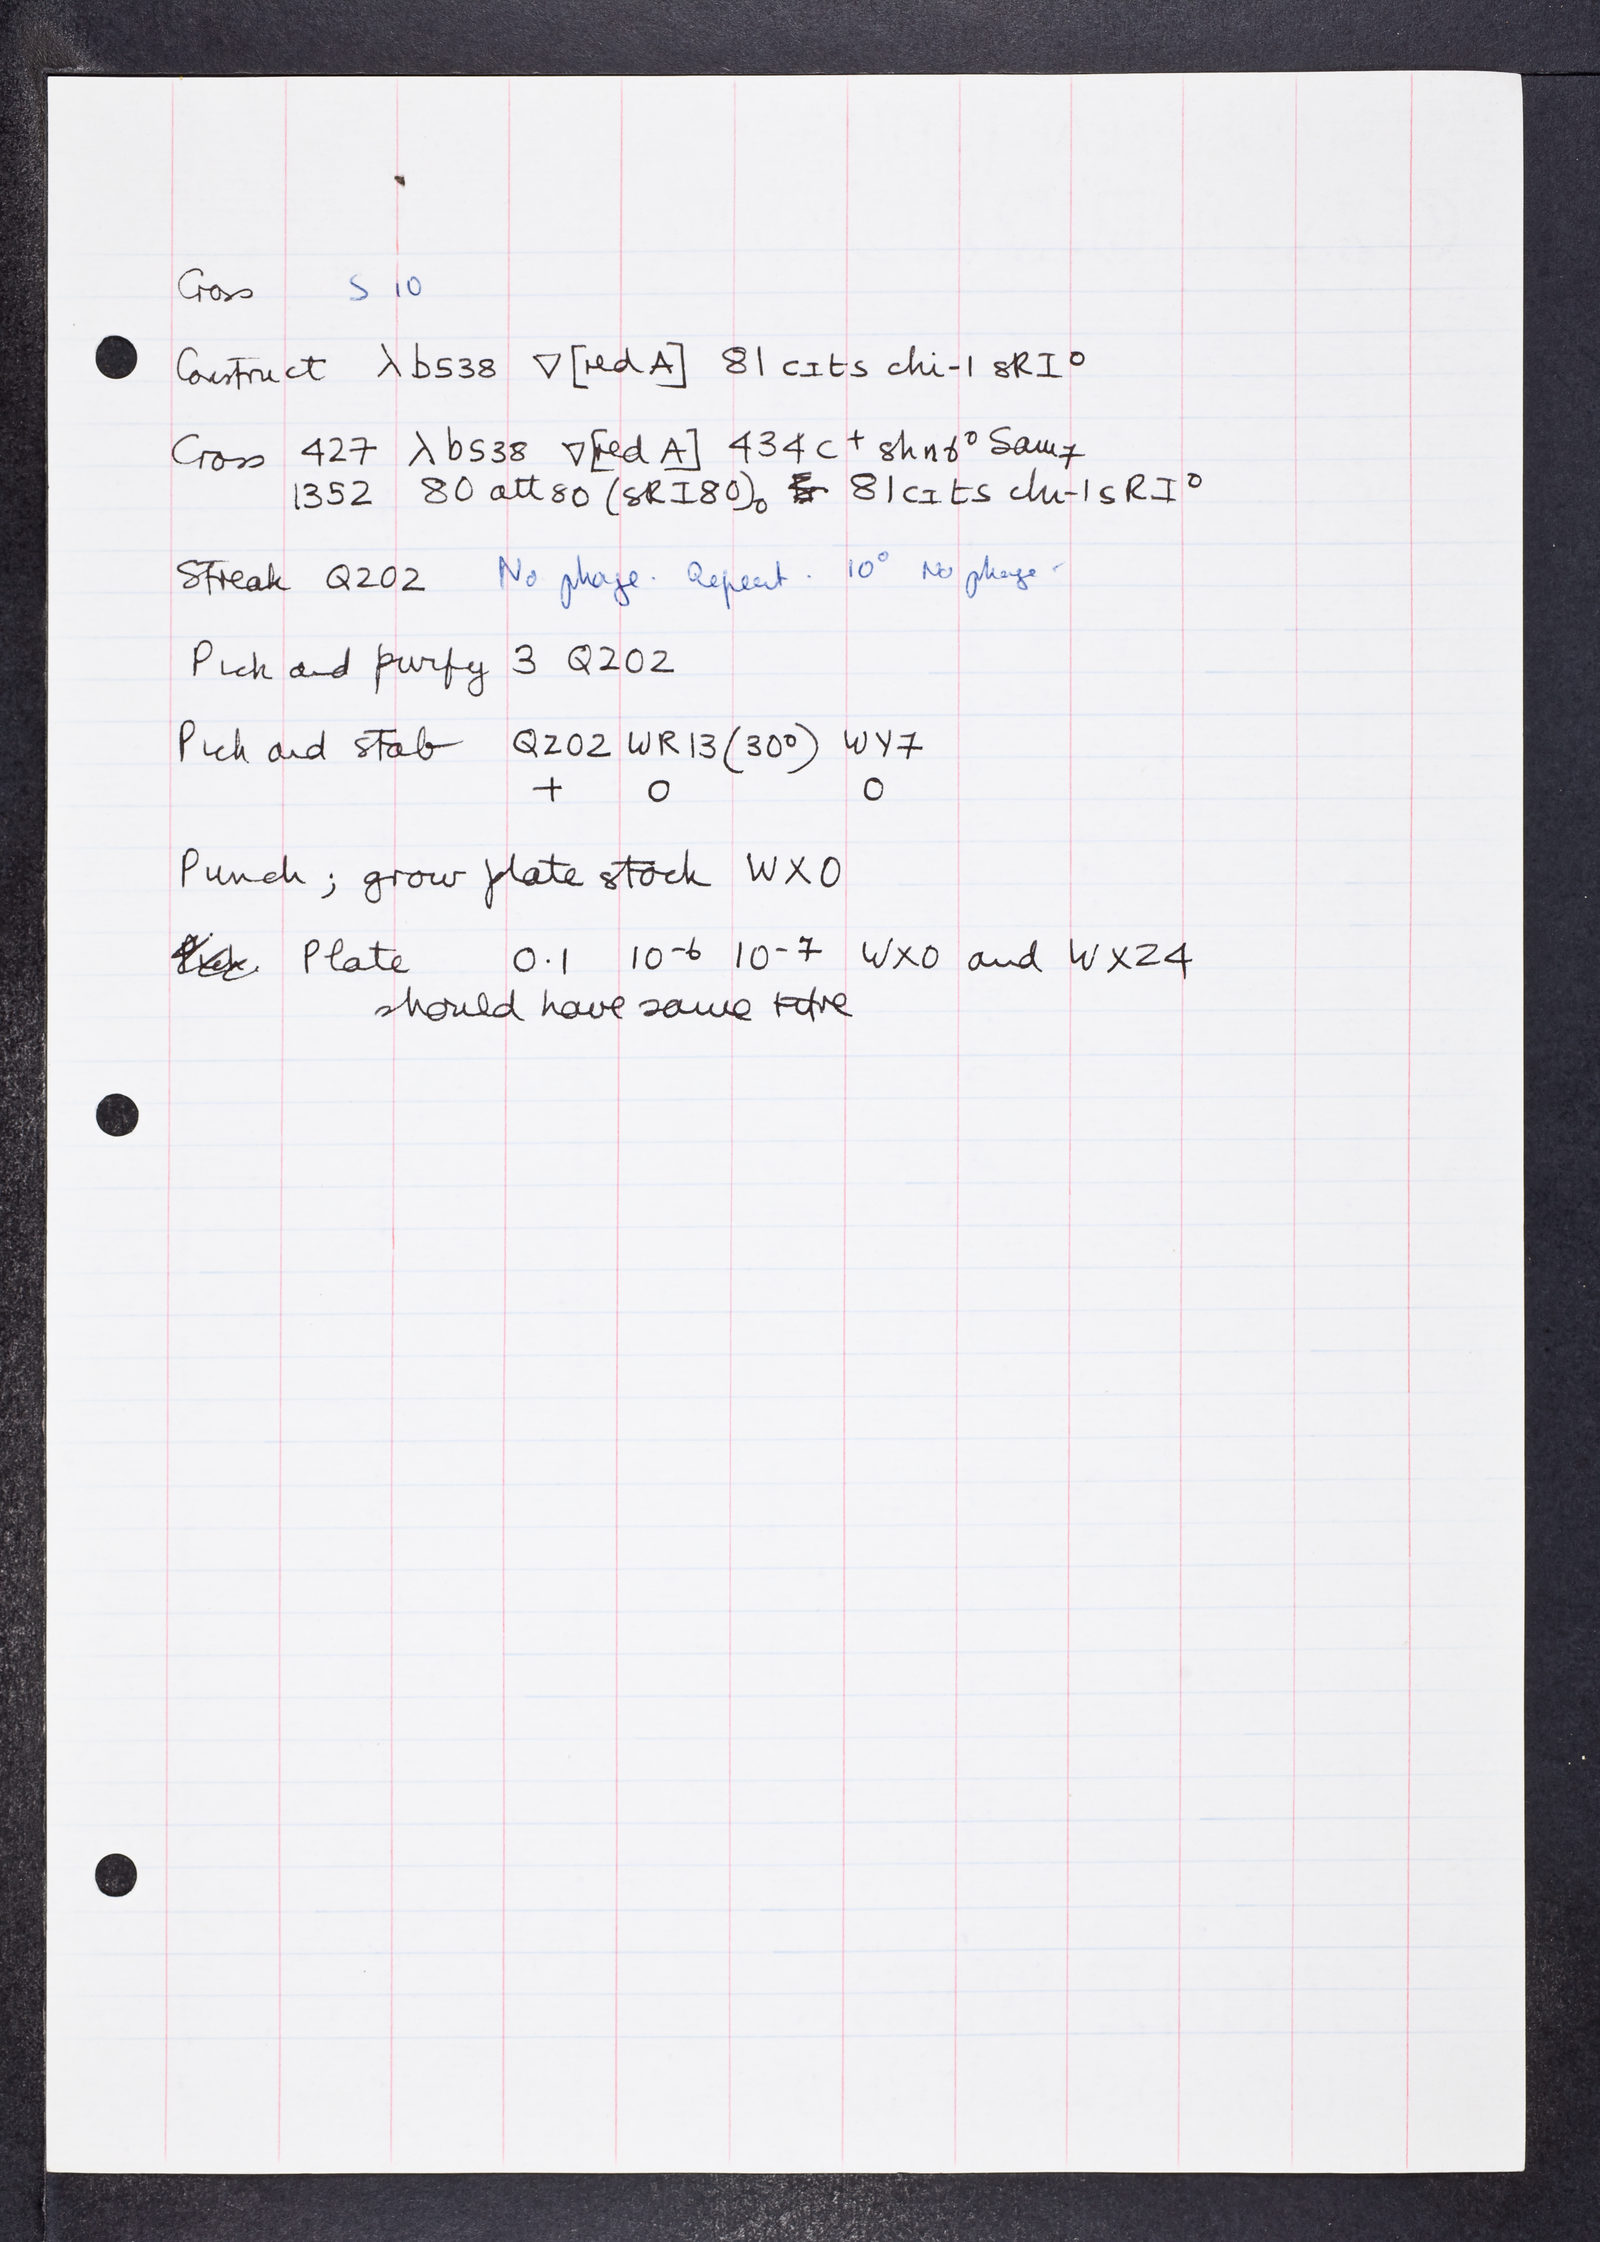 Cross S 10
Construct λ b538 ▽[red A] 81 cIts chi-1 sRI°
Cross 427 λ b538 ▽[red A] 434 c+ shn6° Sam7
1352 80 att80 (sRI80)₀ 81 cIts chi-1 sRI°
Streak Q202 No phage. Repeat. 10° No phage.
Pick and purify 3 Q202
Pick and stab Q202 WR13 (30°) WY7
+ 0 0
Punch; grow plate stock WX0
Plate 0.1 10-6 10-7 WX0 and WX24
should have same titre